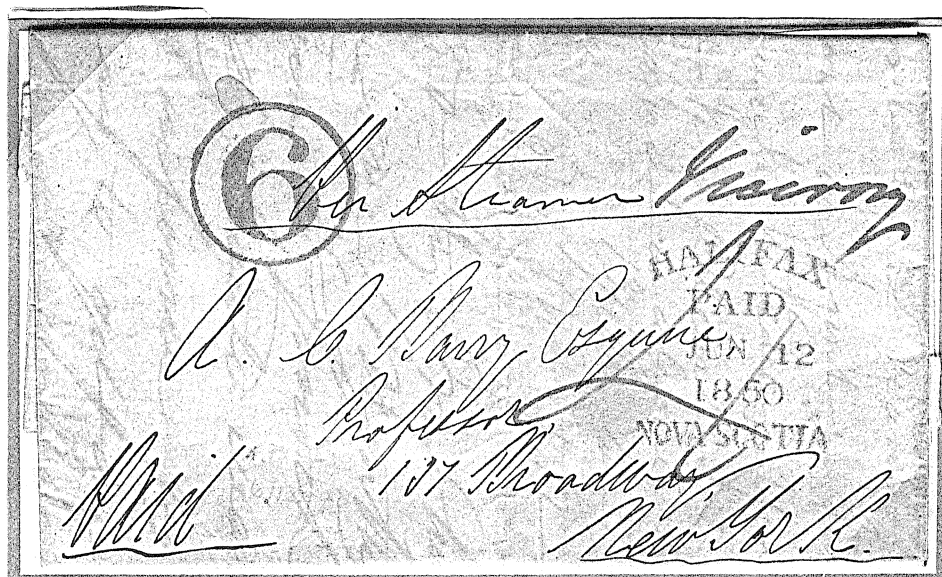 6
Per Steamer
HALIFAX
PAID
JUN 12
1850
NOVA SCOTIA
A. C. Barry Esquire
Professor
137 Broadway
New York.
Paid